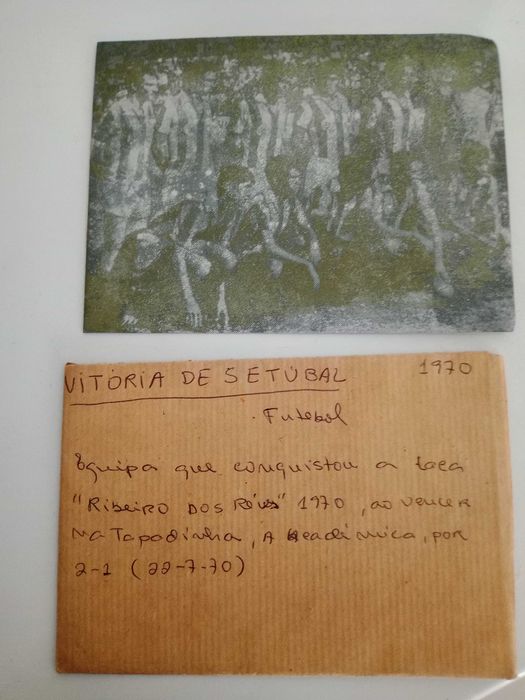 VITÓRIA DE SETÚBAL 1970
Futebol
Equipa que conquistou a taça
"RIBEIRO DOS Réis" 1970, ao vencer
na Tapadinha, A Académica, por
2-1 (22-7-70)